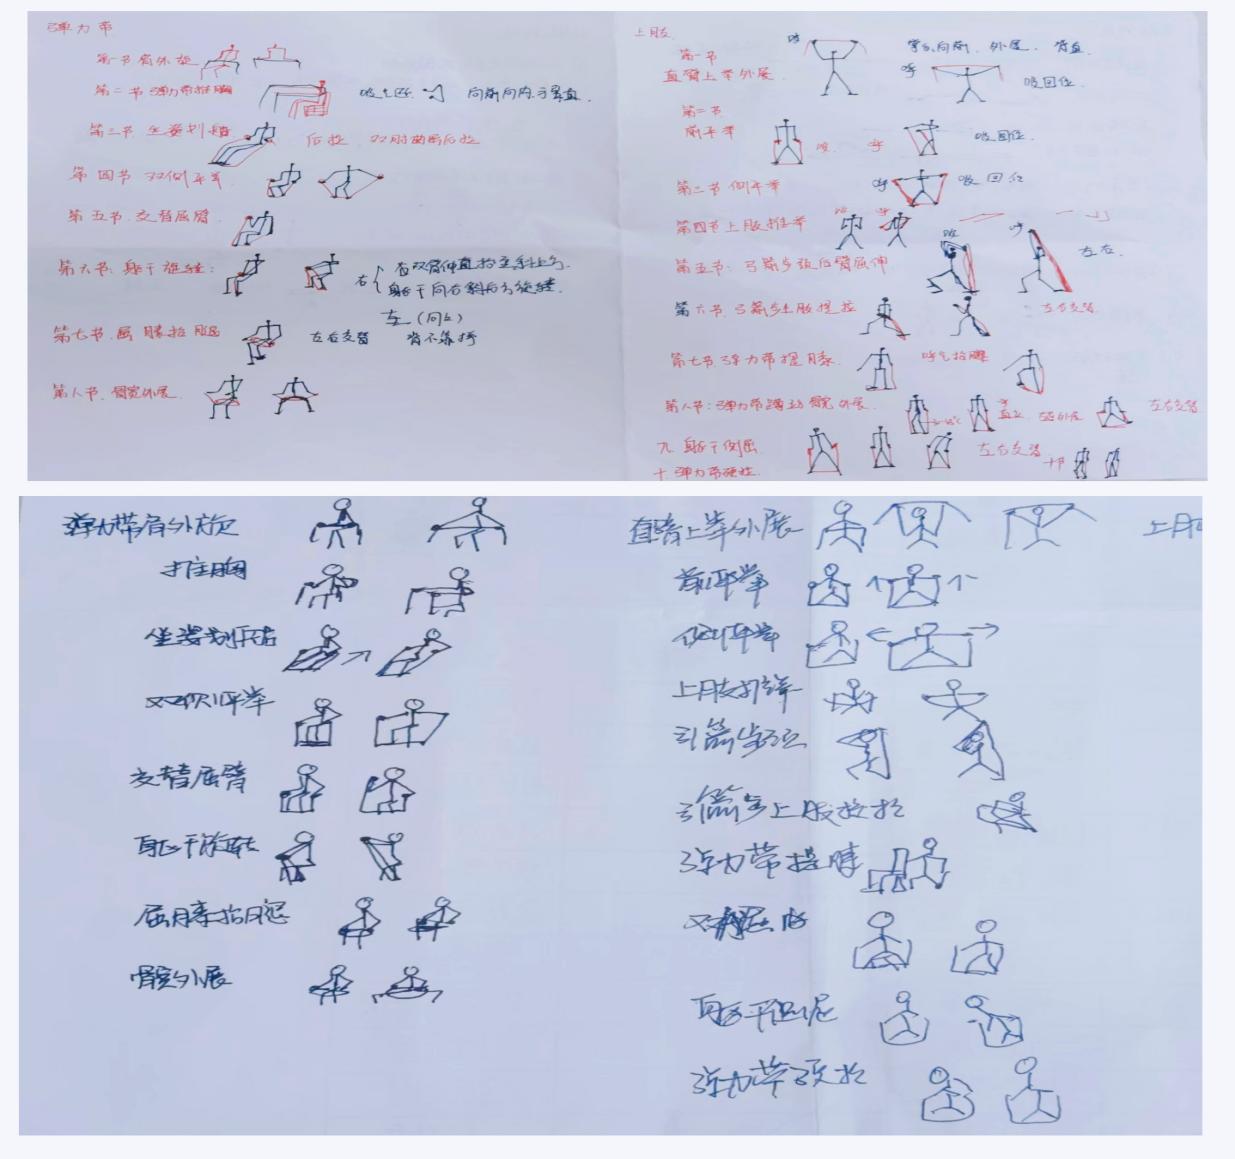 弹力带
第一节肩外旋
第二节弹力带推胸 吸气 向前向内 手臂直.
第三节 坐姿划船 后拉 双肘曲向后拉
第四节 双侧平举
第五节.交替屈臂
第六节.身干旋转: 右 右双臂伸直抬至斜上方.
身干向右斜后方旋转.
左 (同上)
第七节.屈膝抬腿 左右交替 背不靠椅
第八节.髋外展
上肢
第一节 吸 掌心向前. 外展. 臂直.
直臂上举外展. 呼 吸回位.
第二节
前平举 吸 呼 吸回位.
第三节 侧平举 呼 吸回位
第四节上肢推举 吸 呼
第五节: 弓箭步颈后臂屈伸 吸 呼 左右
第六节.弓箭步上肢提拉 左右交替
第七节.弹力带提膝. 呼气抬腿
第八节:弹力带 髋外展. 呼 直立. 左右交替
九.身干侧屈 左右交替
十.弹力带硬拉. 十节
弹力带肩外旋
推胸
坐姿划船
双侧平举
交替屈臂
身干旋转
屈膝抬腿
髋外展
直臂上举外展 上肢
前平举
侧平举
上肢推举
弓箭步颈
弓箭步上肢拉
弹力带提膝
身干侧屈
弹力带硬拉